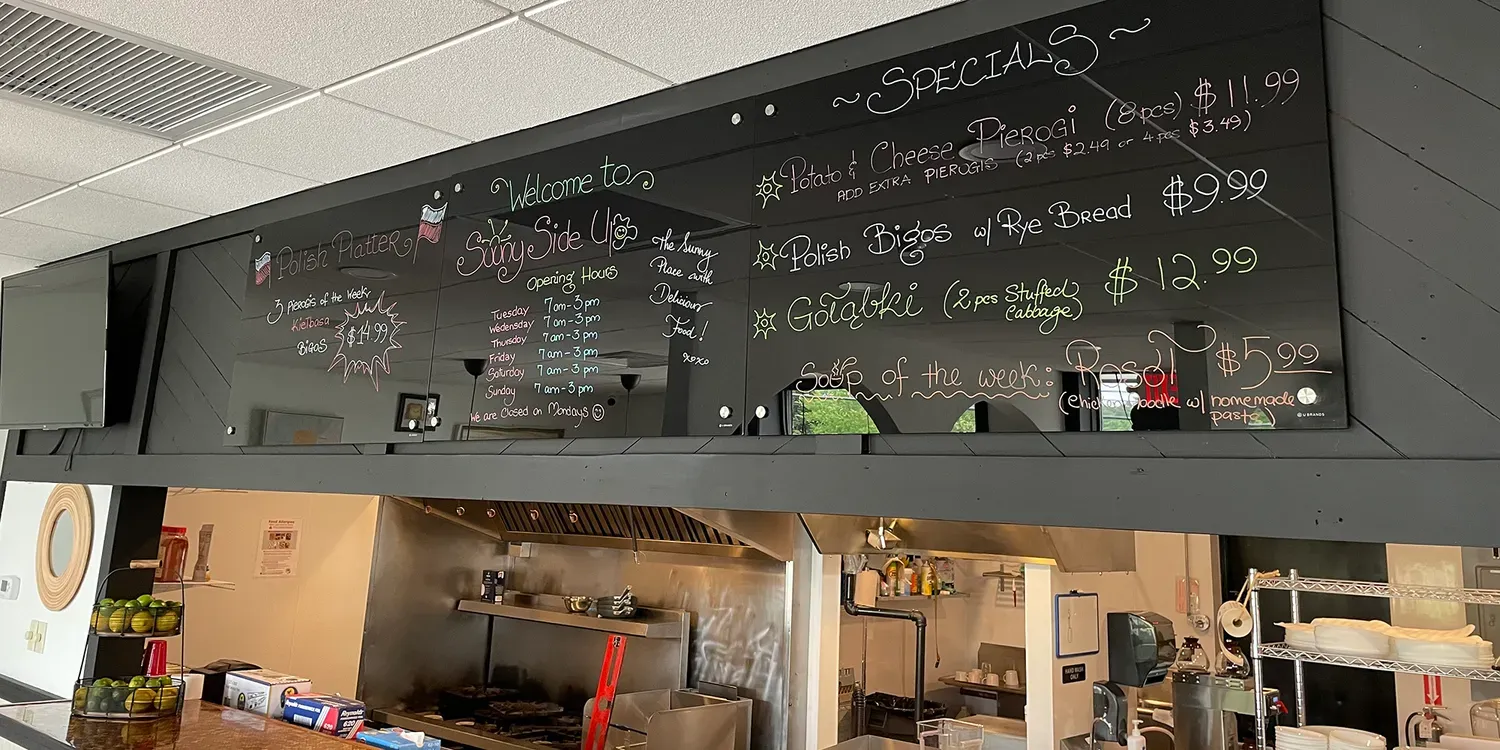 Polish Platter
3 Pierogis of the Week
Kielbasa
Bigos
$14.99
Welcome to
Sunny Side Up
Opening Hours
Tuesday 7am-3pm
Wednesday 7am-3pm
Thursday 7am-3pm
Friday 7am-3pm
Saturday 7am-3pm
Sunday 7am-3pm
We are Closed on Mondays
The Sunny
Place with
Delicious
Food!
xoxo
~SPECIALS~
Potato & Cheese Pierogi (8pcs) $11.99
ADD EXTRA PIEROGIS (2pcs $2.49 or 4pcs $3.49)
Polish Bigos w/ Rye Bread $9.99
Gołąbki (2pcs Stuffed Cabbage) $12.99
Soup of the week: Rosół $5.99
(chicken noodle w/ homemade
pasta)
U BRANDS
U BRANDS
U BRANDS
Reynolds
620
HAND WASH
ONLY